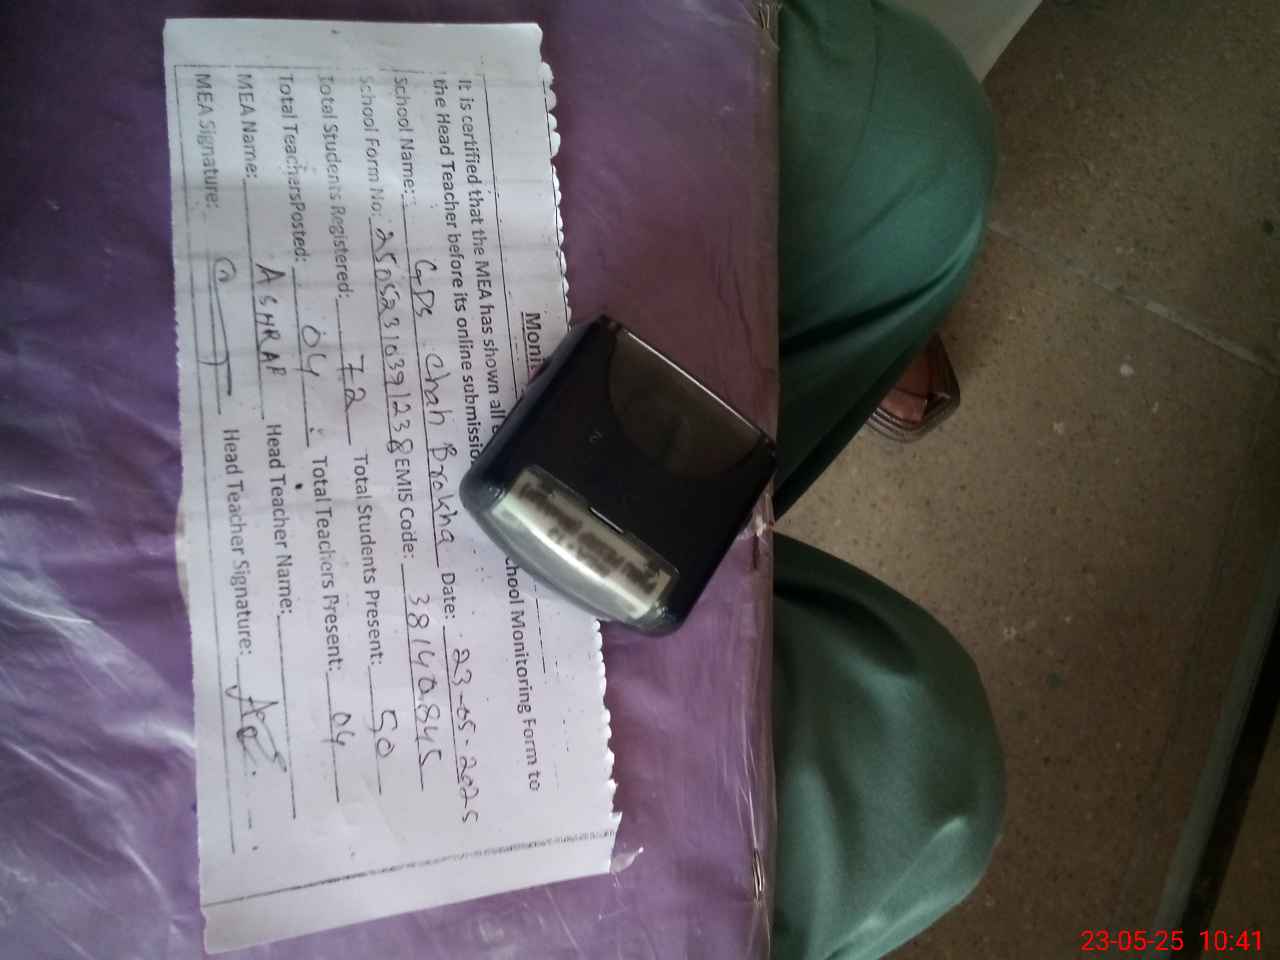 Monit
It is certified that the MEA has shown all chool Monitoring Form to
the Head Teacher before its online submissio
School Name: GPS Chah Brokha Date: 23-05-2025
School Form No: 25052310391238 EMIS Code: 38140845
Total Students Registered: 72 Total Students Present: 50
Total TeachersPosted: 04 Total Teachers Present: 04
MEA Name: ASHRAF Head Teacher Name:
MEA Signature: Head Teacher Signature:
23-05-25 10:41